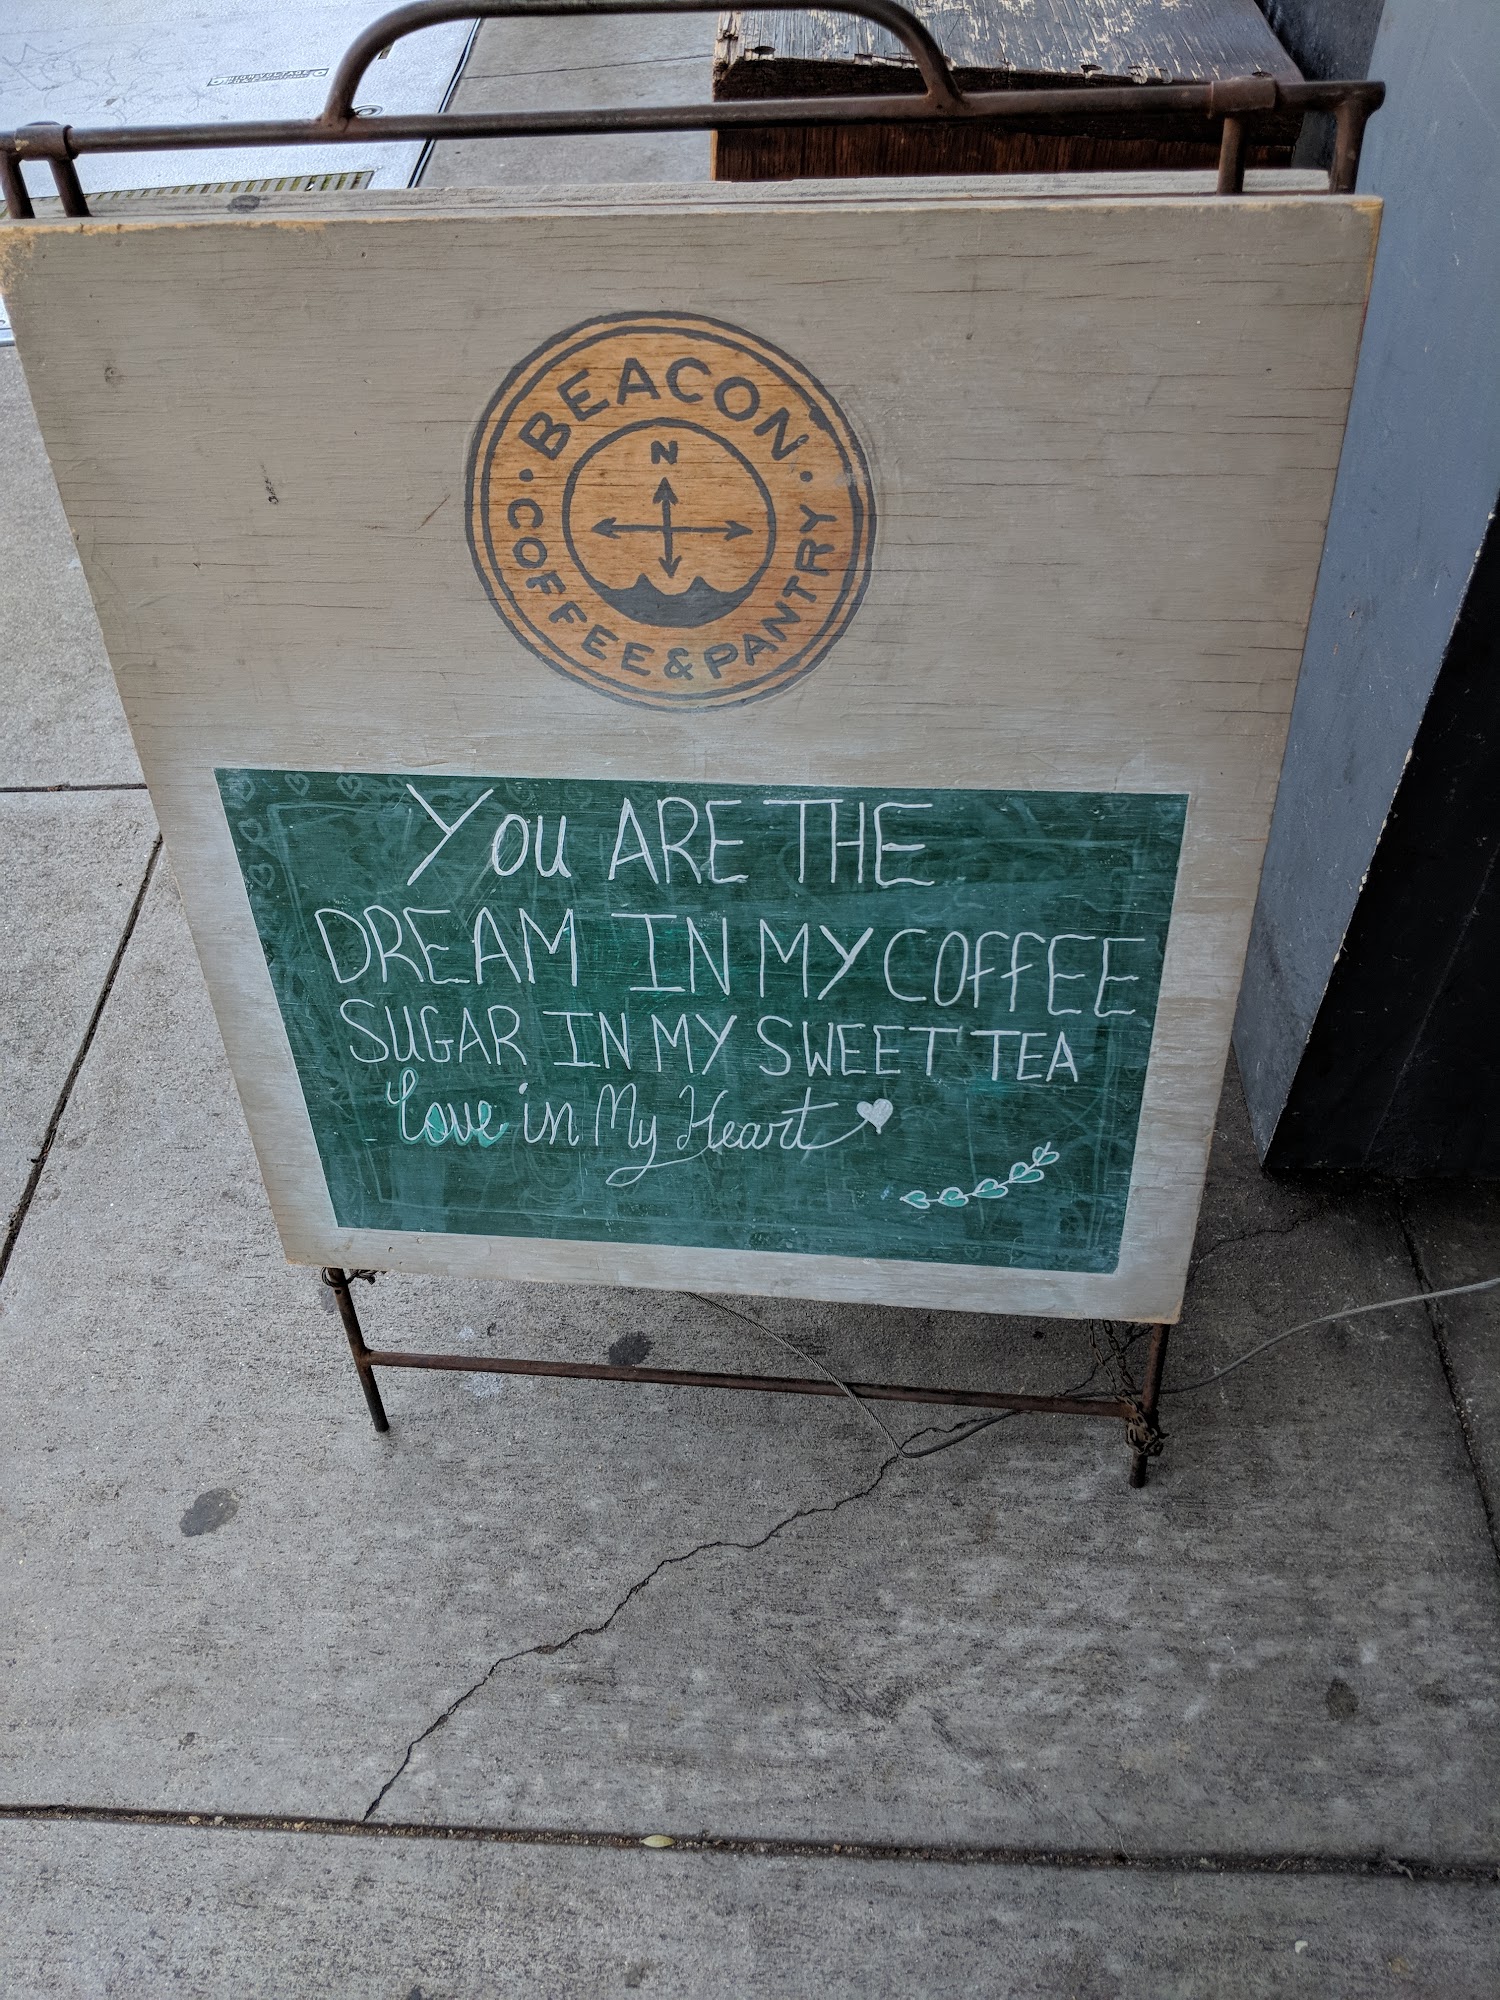 BEACON
N
COFFEE & PANTRY
You ARE THE
DREAM IN MY COFFEE
SUGAR IN MY SWEET TEA
Love in My Heart